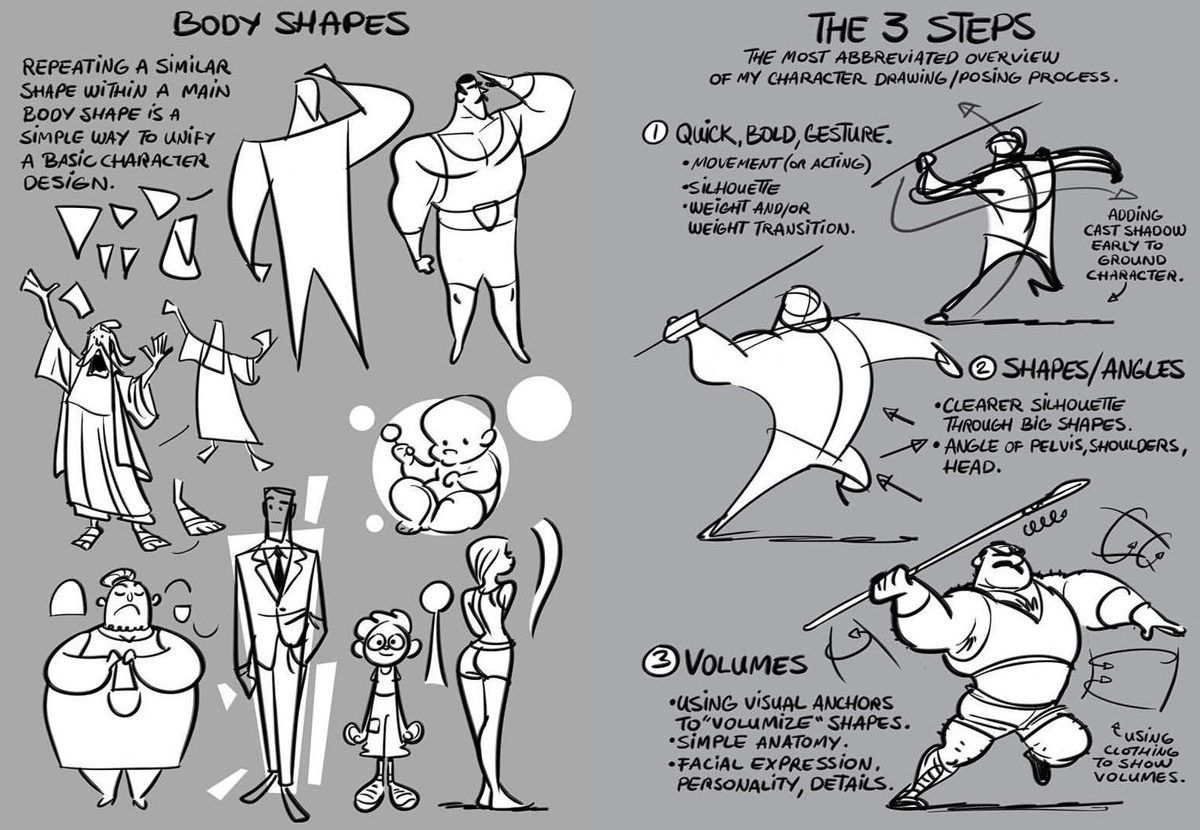 BODY SHAPES
REPEATING A SIMILAR
SHAPE WITHIN A MAIN
BODY SHAPE IS A
SIMPLE WAY TO UNIFY
A BASIC CHARACTER
DESIGN.
THE 3 STEPS
THE MOST ABBREVIATED OVERVIEW
OF MY CHARACTER DRAWING/POSING PROCESS.
1 QUICK, BOLD, GESTURE.
•MOVEMENT (OR ACTING)
•SILHOUETTE
•WEIGHT AND/OR
WEIGHT TRANSITION.
ADDING
CAST SHADOW
EARLY TO
GROUND
CHARACTER.
2 SHAPES/ANGLES
•CLEARER SILHOUETTE
THROUGH BIG SHAPES.
•ANGLE OF PELVIS, SHOULDERS,
HEAD.
3 VOLUMES
•USING VISUAL ANCHORS
TO "VOLUMIZE" SHAPES.
•SIMPLE ANATOMY.
•FACIAL EXPRESSION,
PERSONALITY, DETAILS.
USING
CLOTHING
TO SHOW
VOLUMES.